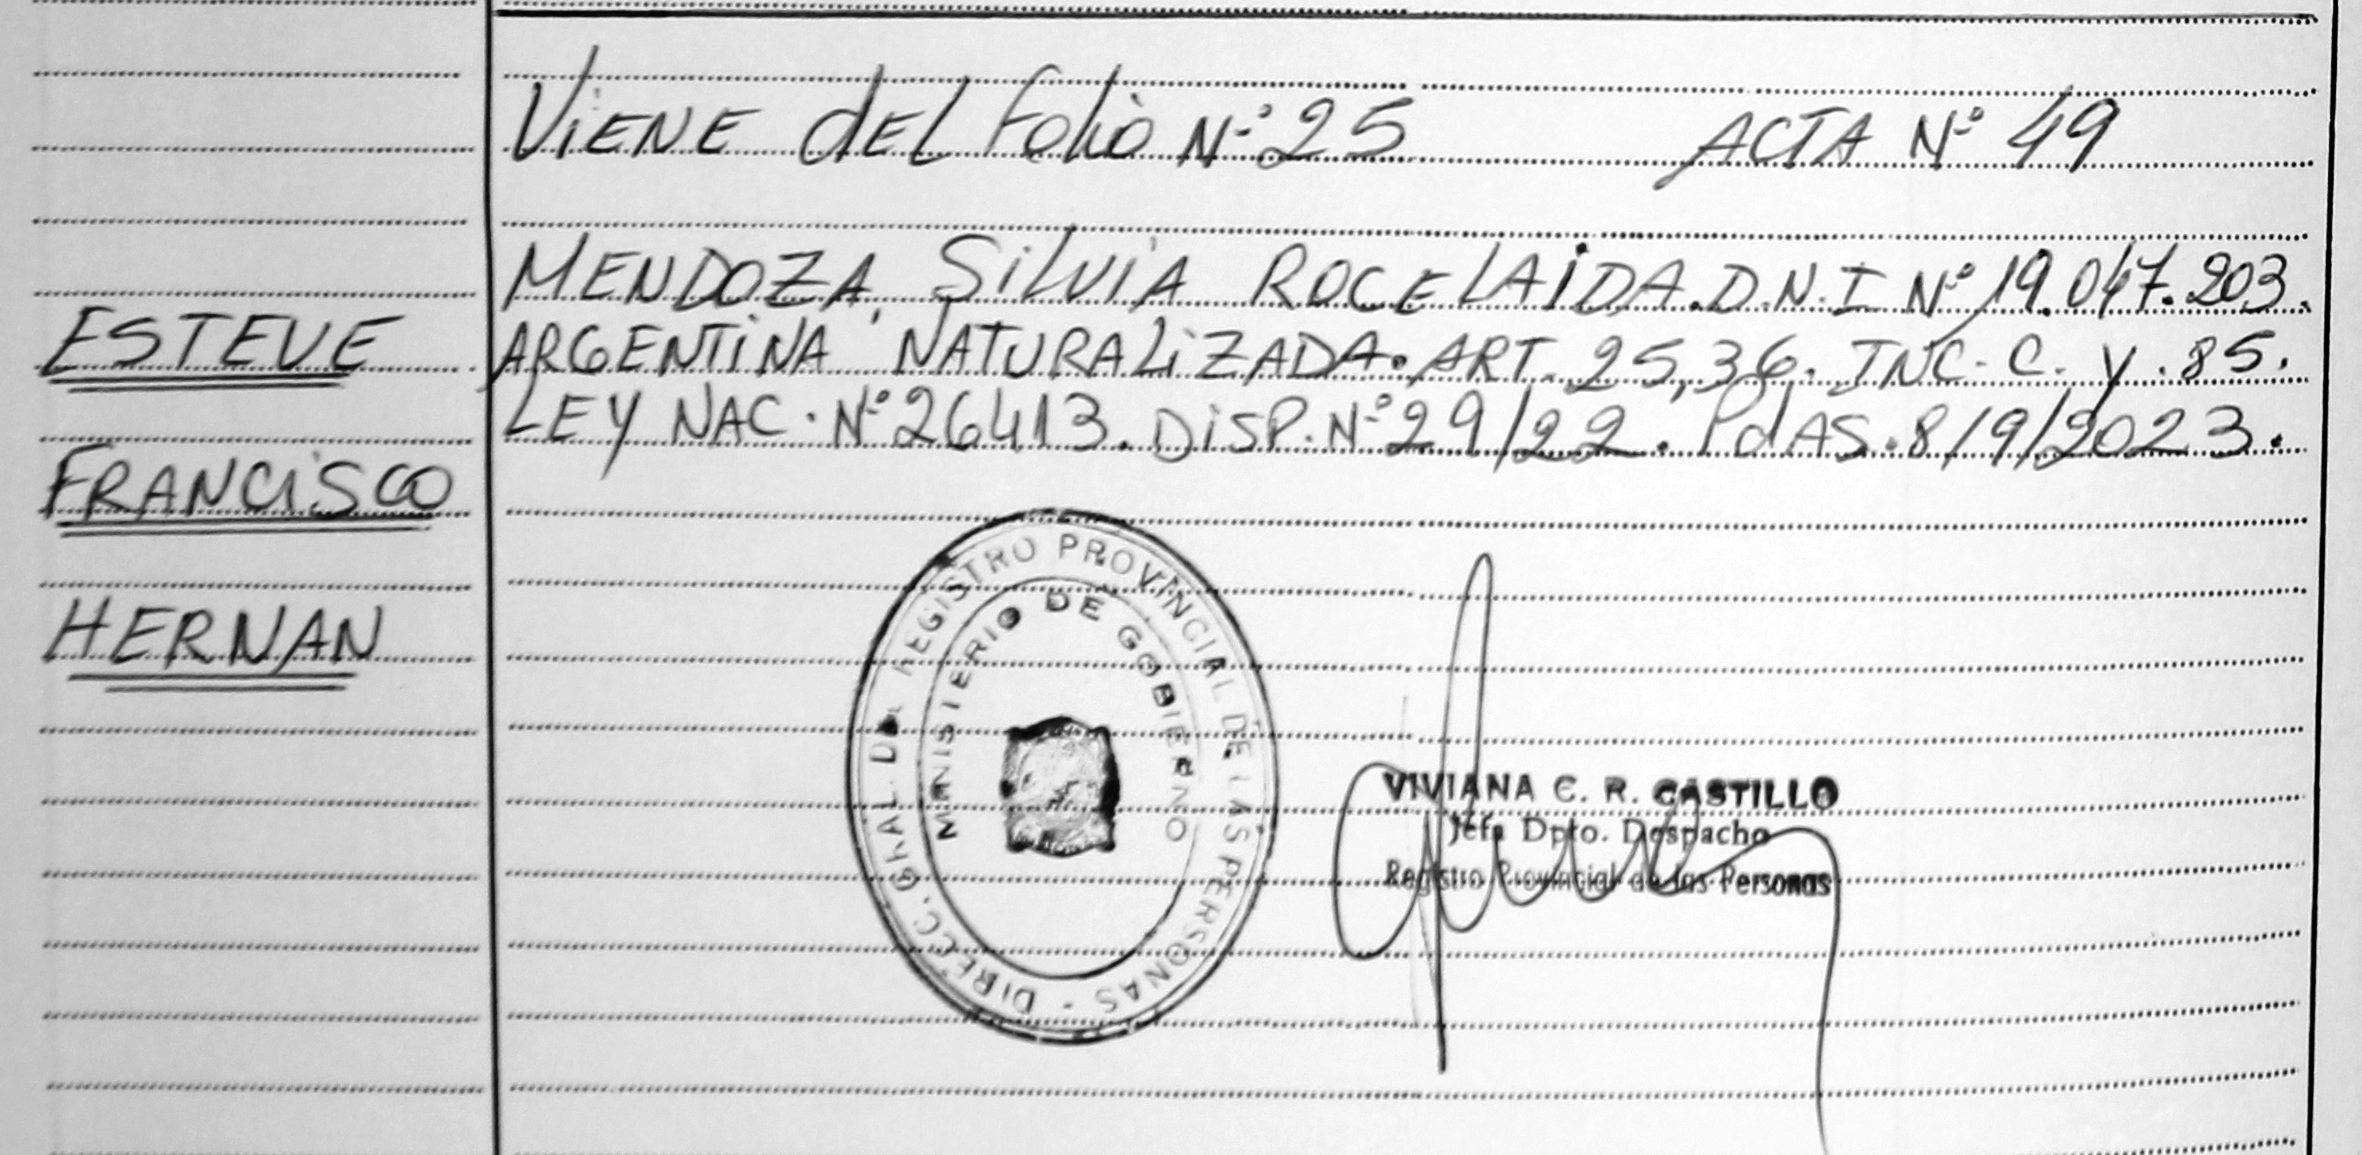 Viene del folio N° 25 ACTA N° 49
MENDOZA, Silvia ROCELAIDA. D.N.I N° 19.047.203.
ESTEVE
ARGENTINA NATURALIZADA. ART. 25,36. INC. C. Y. 85.
LEY NAC. N° 26413. DISP. N° 29/22. PdAS. 8/9/2023.
FRANCISCO
HERNAN
DIRECC. GRAL. DEL REGISTRO PROVINCIAL DE LAS PERSONAS -
MINISTERIO DE GOBIERNO
VIVIANA C. R. CASTILLO
Jefa Dpto. Despacho
Registro Provincial de las Personas